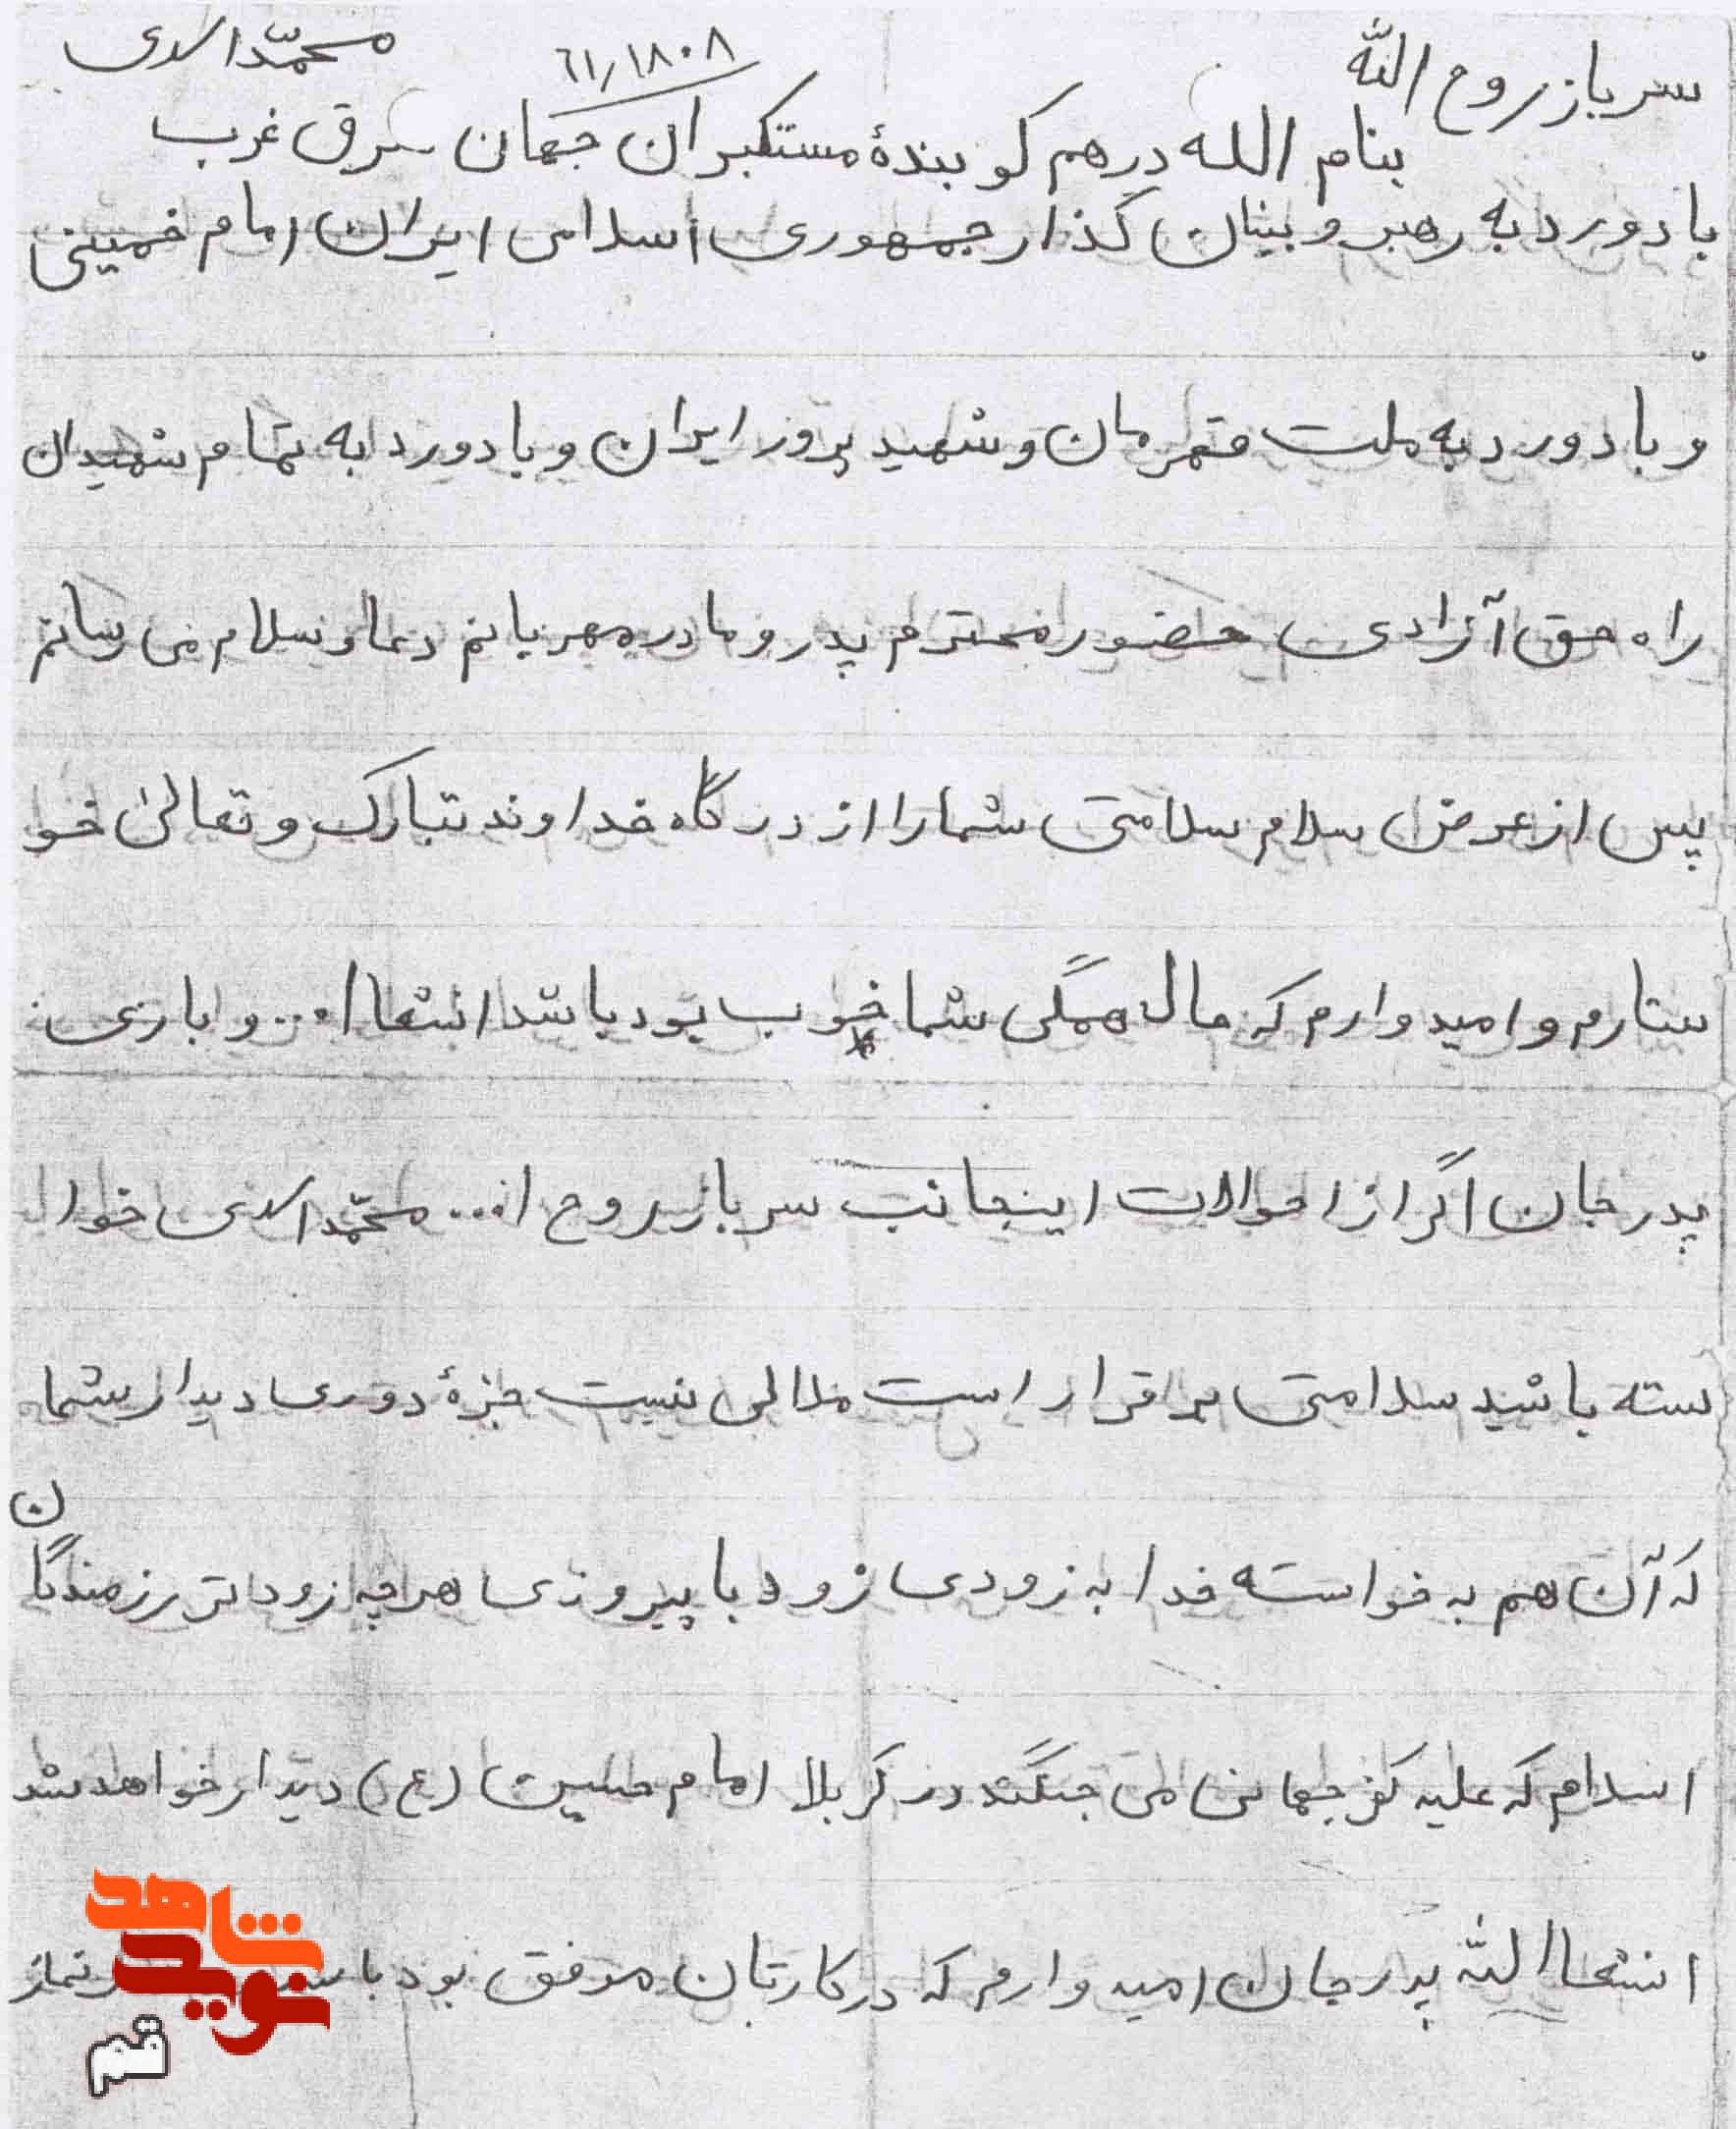 سرباز روح الله
۶۱/۱۸۰۸
محمّد اسدی
بنام الله درهم کو بندهٔ مستکبران جهان شرق غرب
با دورد به رهبر و بینان گذار جمهوری اسلامی ایران امام خمینی
و با دورد به ملت قهرمان و شهید پرور ایران و با دورد به تمام شهیدان
راه حق آزادی حضور محترم پدر و مادر مهربانم دعا و سلام می رسانم
پس از عرض سلام سلامتی شما را از درگاه خداوند تبارک و تعالیٰ خو
ستارم و امید وارم که حال همگی شما خوب بود باشد انشاا... و باری :
پدر جان اگر از احوالات اینجانب سرباز روح ا... محمّد اسدی خوا
سته باشید سلامتی بر قرار است ملالی نیست جزهٔ دوری دیدار شما
که آن هم به خواسته خدا به زودی زود با پیروزی هر چه زود تر رزمندگان
اسلام که علیه کفر جهانی می جنگند در کربلا امام حسین (ع) دیدار خواهد شد
انشاالله پدر جان امید وارم که در کارتان موفق بود نماز
شاهد
نوید
قم